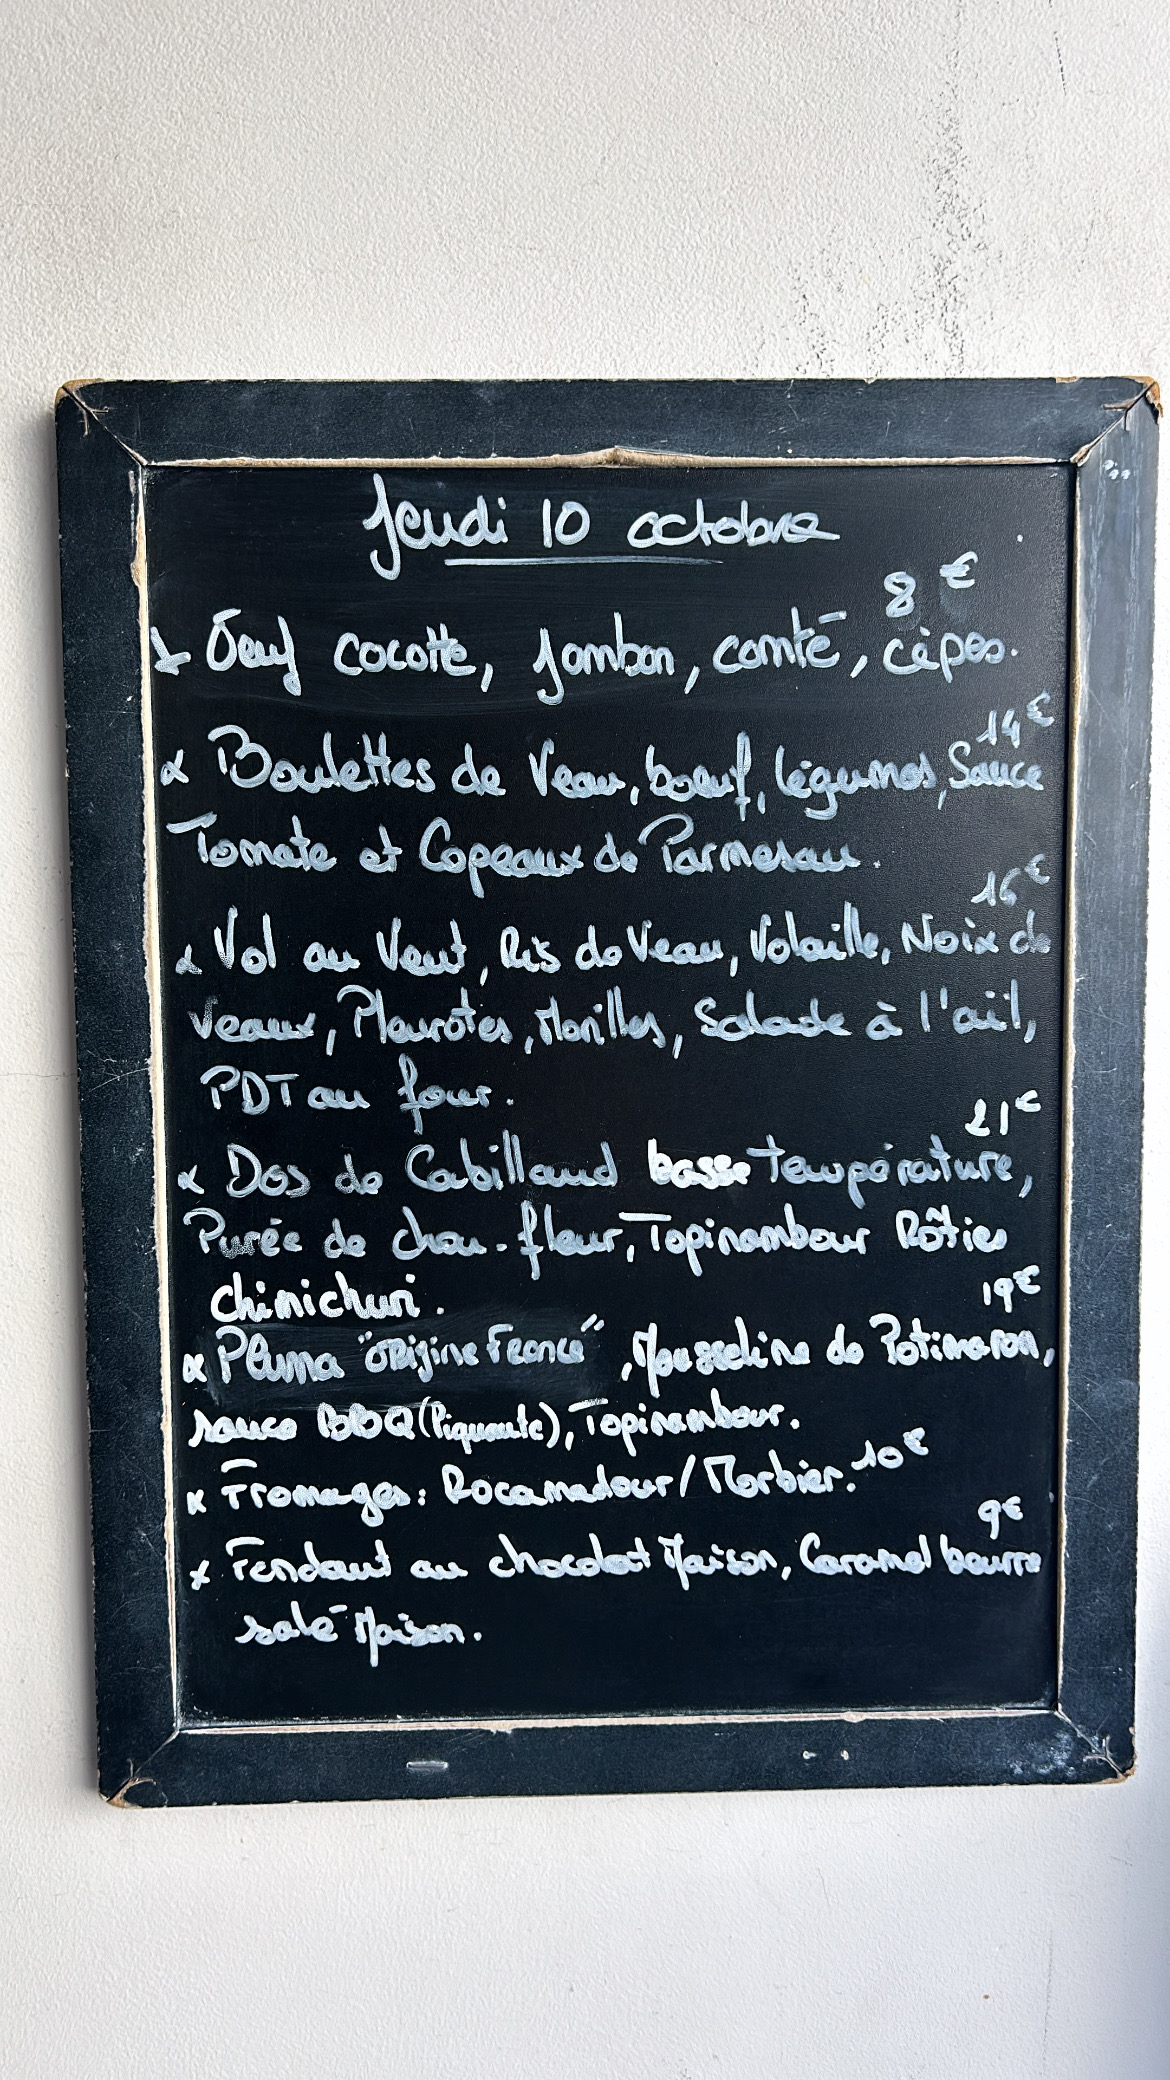 Jeudi 10 octobre
8 €
Oeuf cocotte, jambon, comté, cèpes.
14 €
Boulettes de Veau, boeuf, légumes, Sauce
Tomate et Copeaux de Parmesan.
16 €
Vol au Vent, Ris de Veau, Volaille, Noix de
Veaux, Pleurotes, Morilles, Salade à l'ail,
PDT au four.
21 €
Dos de Cabillaud basse température,
Purée de chou-fleur, Topinambour Rôties
chimichuri.
19 €
Pluma "origine France", Mousseline de Potimaron,
sauce BBQ (Piquante), Topinambour.
Fromages : Rocamadour / Morbier. 10 €
9 €
Fondant au chocolat Maison, Caramel beurre
salé Maison.